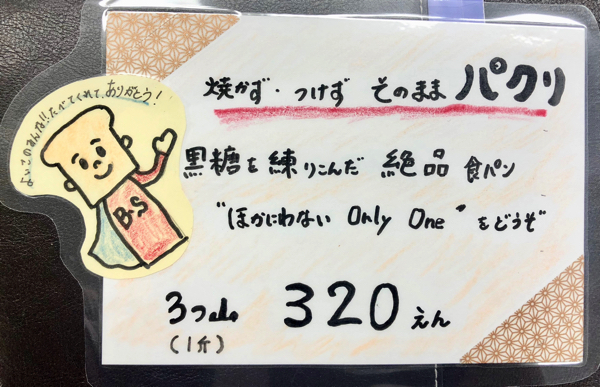 よいこのみんな!!たべてくれて、ありがとう!
B-S
焼かず・つけず そのまま パクリ
黒糖を練りこんだ 絶品 食パン
"ほかにわない Only One"をどうぞ
3つ山 320えん
(1斤)